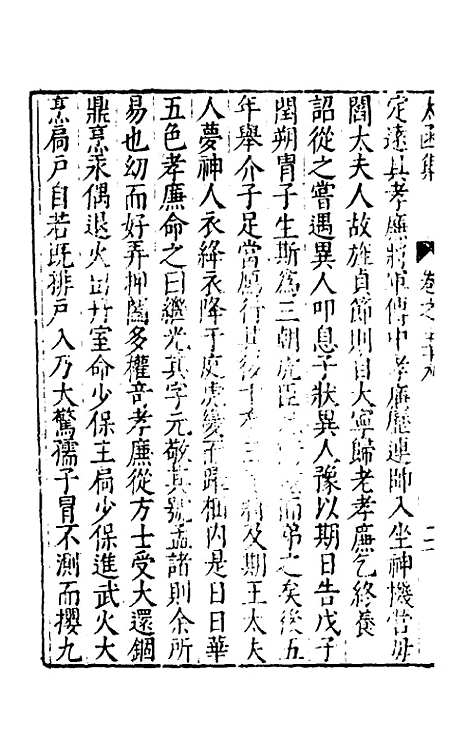 太函集 卷之五十九 二
定遠具孝廉將軍傳中孝廉歷連帥入坐神機營毋
閻太夫人故旌貞節則自大寧歸老孝廉乞終養
詔從之嘗遇異人叩息子狀異人豫以期日告戊子
閏朔胄子生斯為三朝虎臣 而弟之矣後五
年舉介子足當鴈行其後 及期王太夫
人夢神人衣絳衣降于庭虎變而踞榻內是日日華
五色孝廉命之曰繼光其字元敬其號孟諸則余所
易也幼而好弄押闔多權奇孝廉從方士受大還錮
鼎烹汞偶退火出丹室命少保主扃少保進武火大
烹扃戶自若旣排戶入乃大驚孺子冒不測而攖九